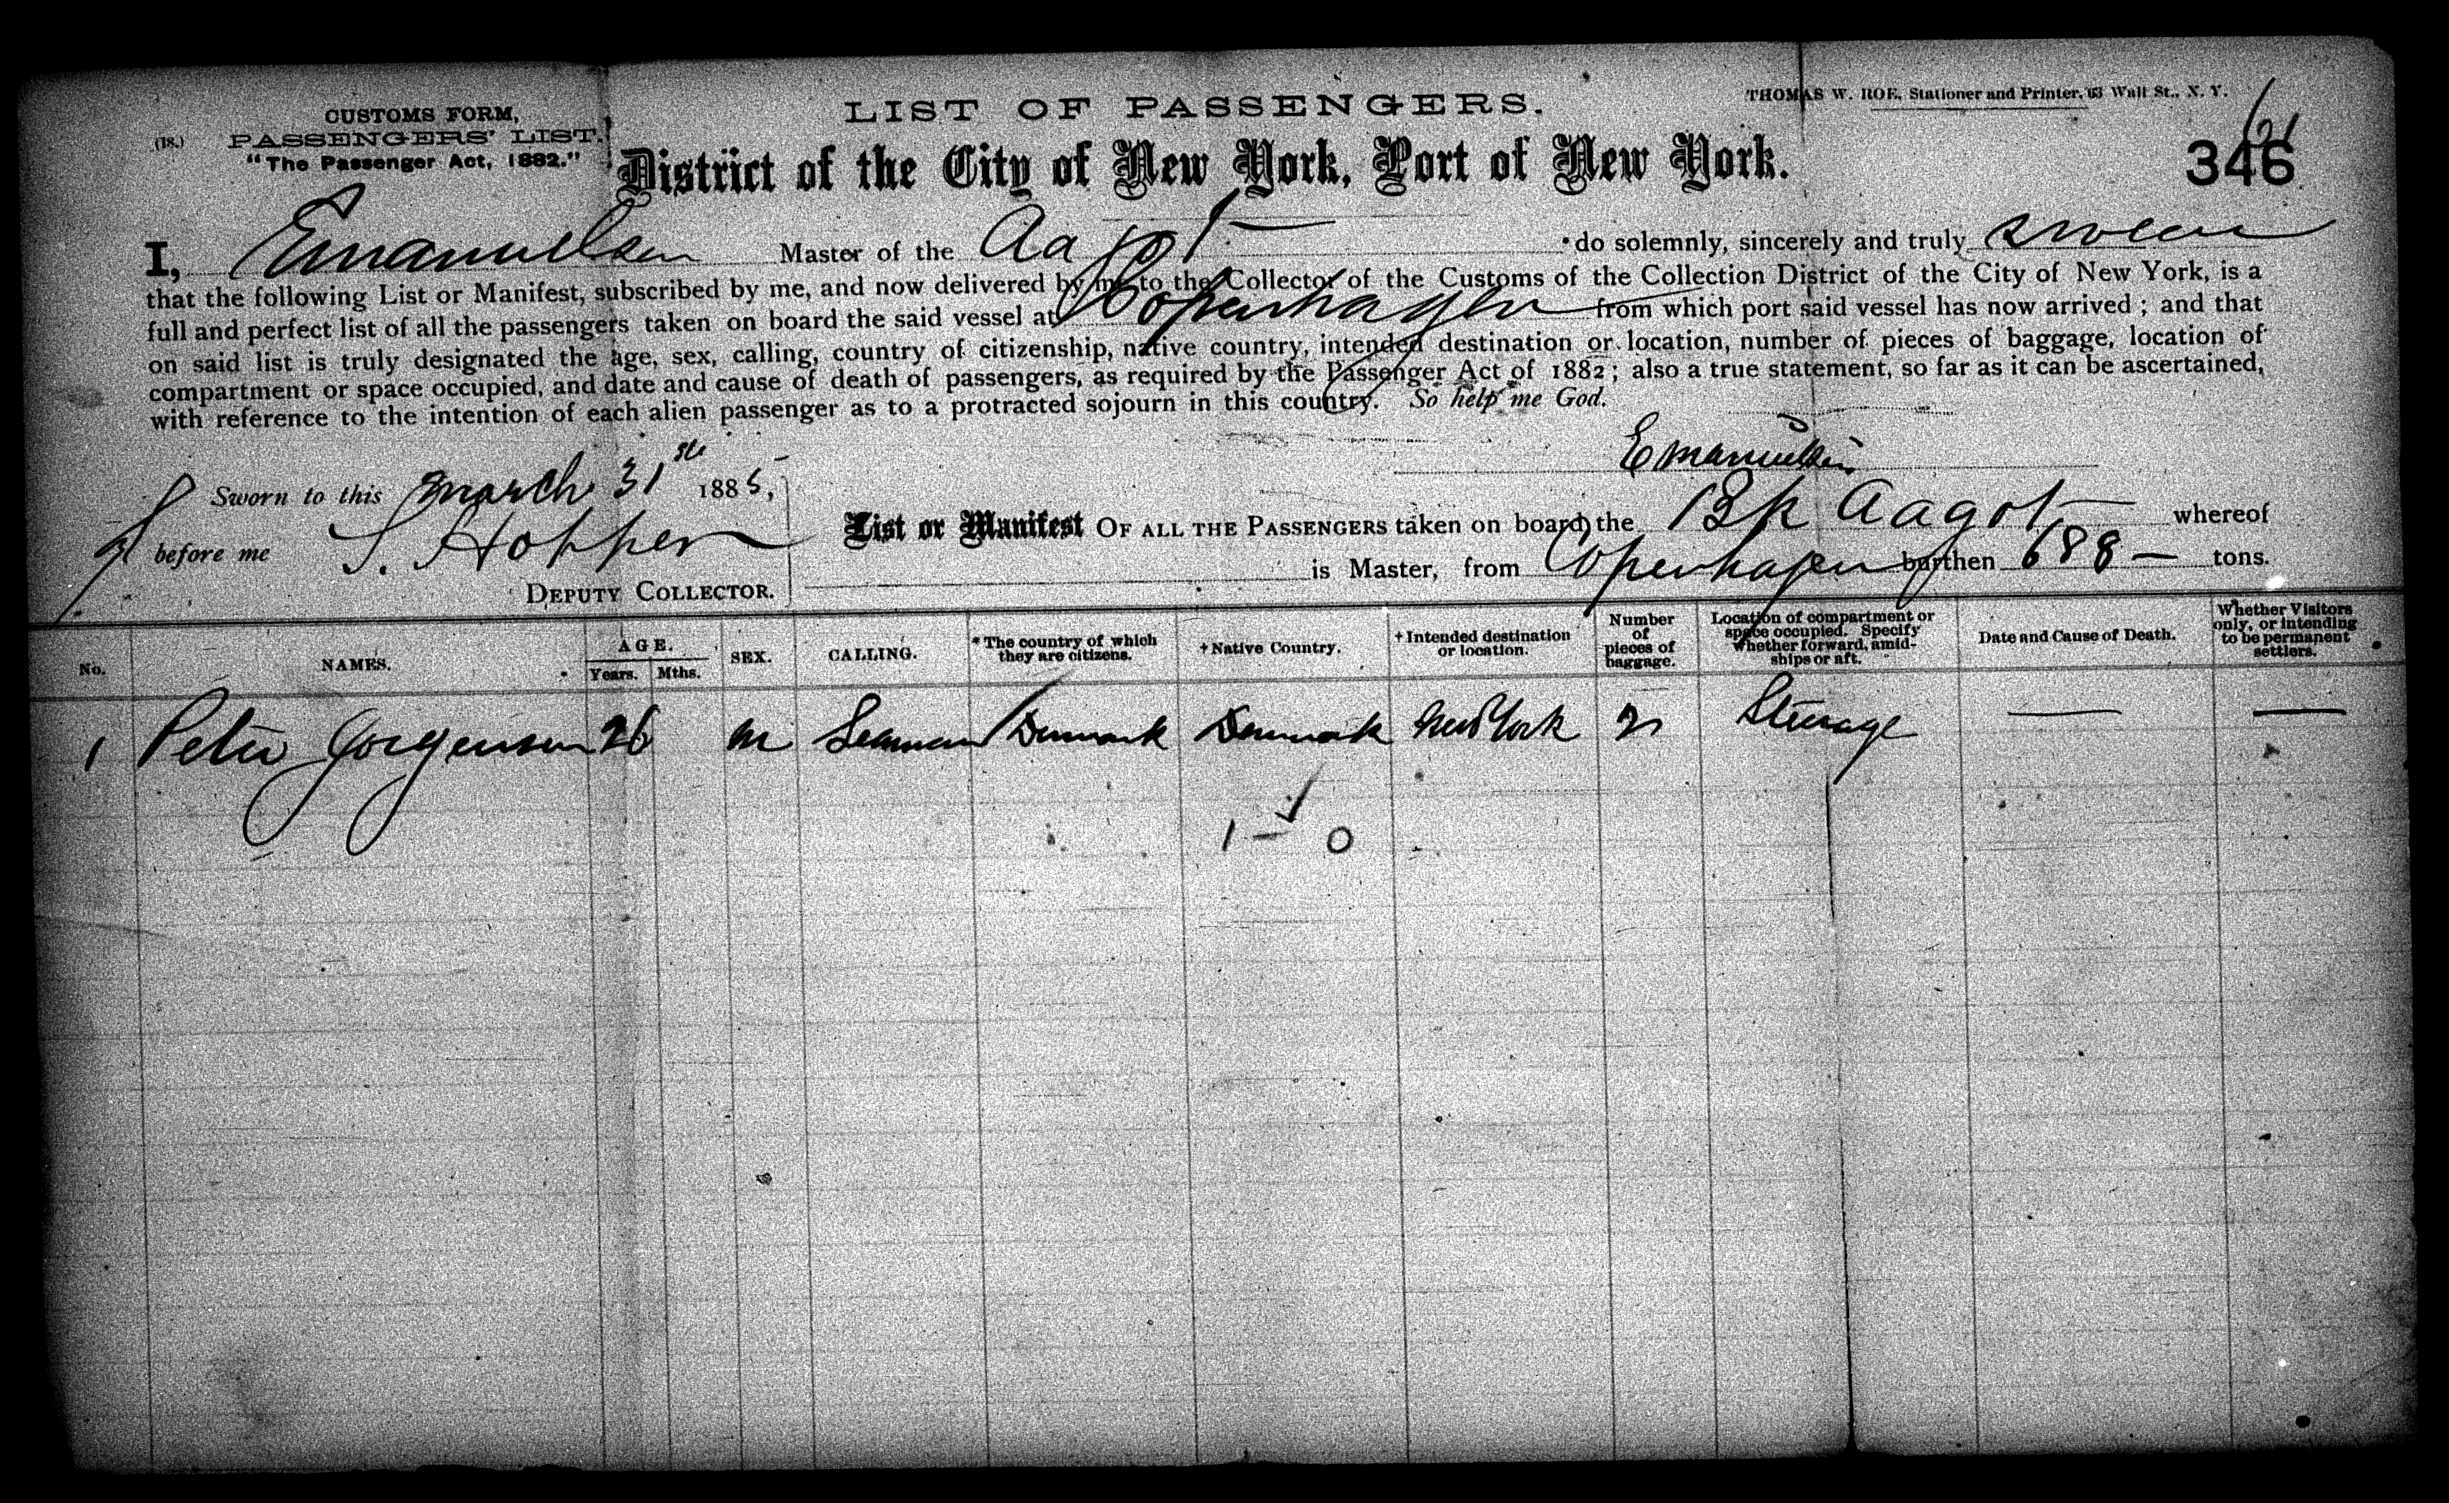 CUSTOMS FORM,
(18.) PASSENGERS' LIST.
"The Passenger Act, 1882."
LIST OF PASSENGERS.
THOMAS W. ROE, Stationer and Printer, 63 Wall St., N. Y.
District of the City of New York, Port of New York.
346
I, Emanuelsen Master of the Aagot do solemnly, sincerely and truly swear
that the following List or Manifest, subscribed by me, and now delivered by me to the Collector of the Customs of the Collection District of the City of New York, is a
full and perfect list of all the passengers taken on board the said vessel at Copenhagen from which port said vessel has now arrived ; and that
on said list is truly designated the age, sex, calling, country of citizenship, native country, intended destination or location, number of pieces of baggage, location of
compartment or space occupied, and date and cause of death of passengers, as required by the Passenger Act of 1882 ; also a true statement, so far as it can be ascertained,
with reference to the intention of each alien passenger as to a protracted sojourn in this country. So help me God.
Emanuelsen
Sworn to this March 31st 1885,
before me S. Hopper
DEPUTY COLLECTOR.
List or Manifest OF ALL THE PASSENGERS taken on board the Bk Aagot whereof
is Master, from Copenhagen burthen 688 — tons.
No. NAMES. AGE. Years. Mths. SEX. CALLING. * The country of which they are citizens. + Native Country. + Intended destination or location. Number of pieces of baggage. Location of compartment or space occupied. Specify whether forward, amidships or aft. Date and Cause of Death. Whether Visitors only, or intending to be permanent settlers.
1 Peter Jorgensen 26 m Seaman Denmark Denmark New York 2 Steerage — —
1 – 0